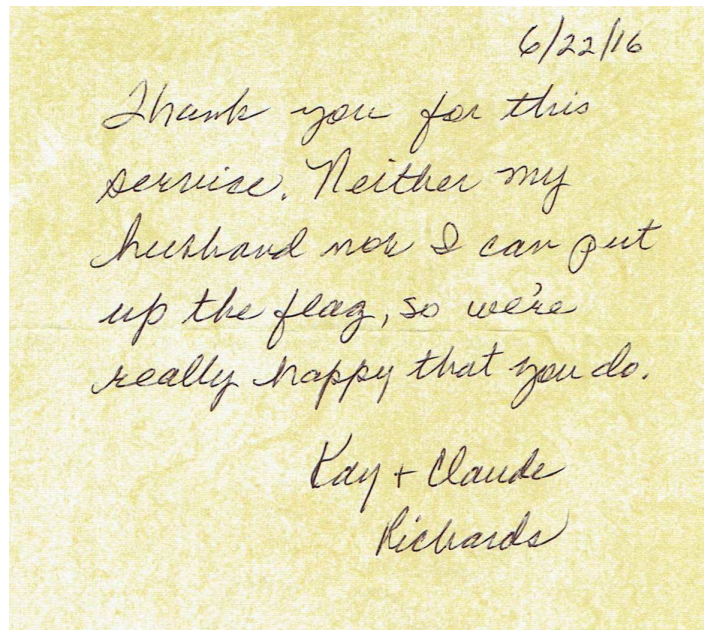 6/22/16
Thank you for this
service. Neither my
husband nor I can put
up the flag, so we're
really happy that you do.
Kay + Claude
Richards